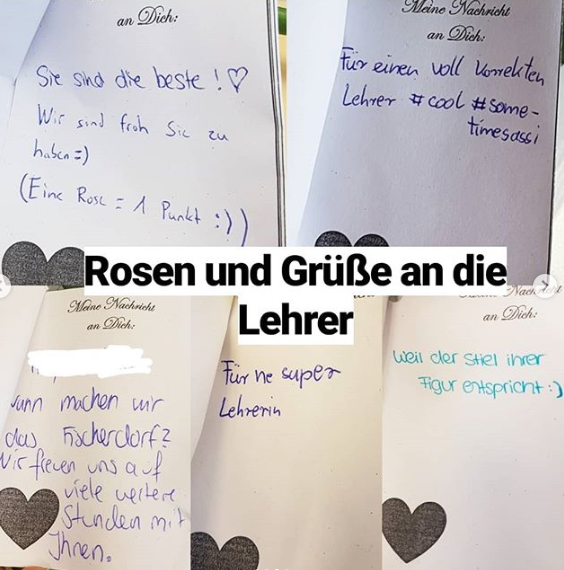 an Dich:
Sie sind die beste ! ♡
Wir sind froh Sie zu
haben =)
(Eine Rose = 1 Punkt :))
Meine Nachricht
an Dich:
Für einen voll korrekten
Lehrer #cool #some-
timesassi
Rosen und Grüße an die
Lehrer
Meine Nachricht
an Dich:
wann machen wir
das Fischerdorf?
Wir freuen uns auf
viele weitere
Stunden mit
Ihnen.
Für ne super
Lehrerin
Meine Nachricht
an Dich:
Weil der Stiel ihrer
Figur entspricht :)